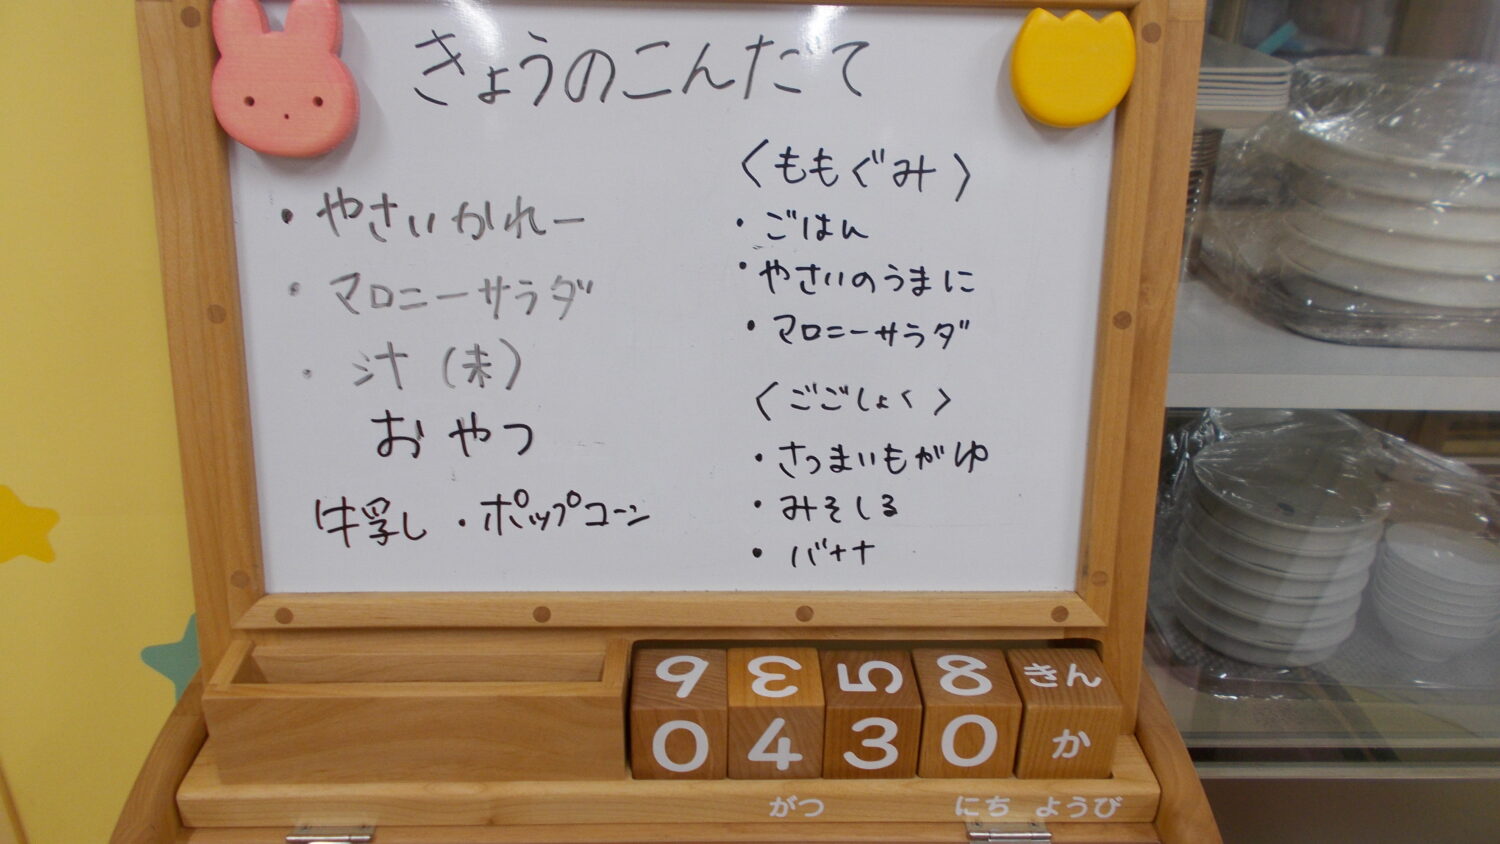 きょうのこんだて
・やさいかれー
・マロニーサラダ
・汁(未)
おやつ
牛乳し・ポップコーン
〈ももぐみ〉
・ごはん
・やさいのうまに
・マロニーサラダ
〈ごごしょく〉
・さつまいもがゆ
・みそしる
・バナナ
6 3 5 8 きん
0 4 3 0 か
がつ にち ようび